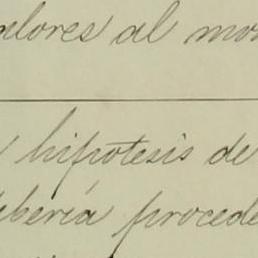 valores al mo
hipotesis de
deberia procede